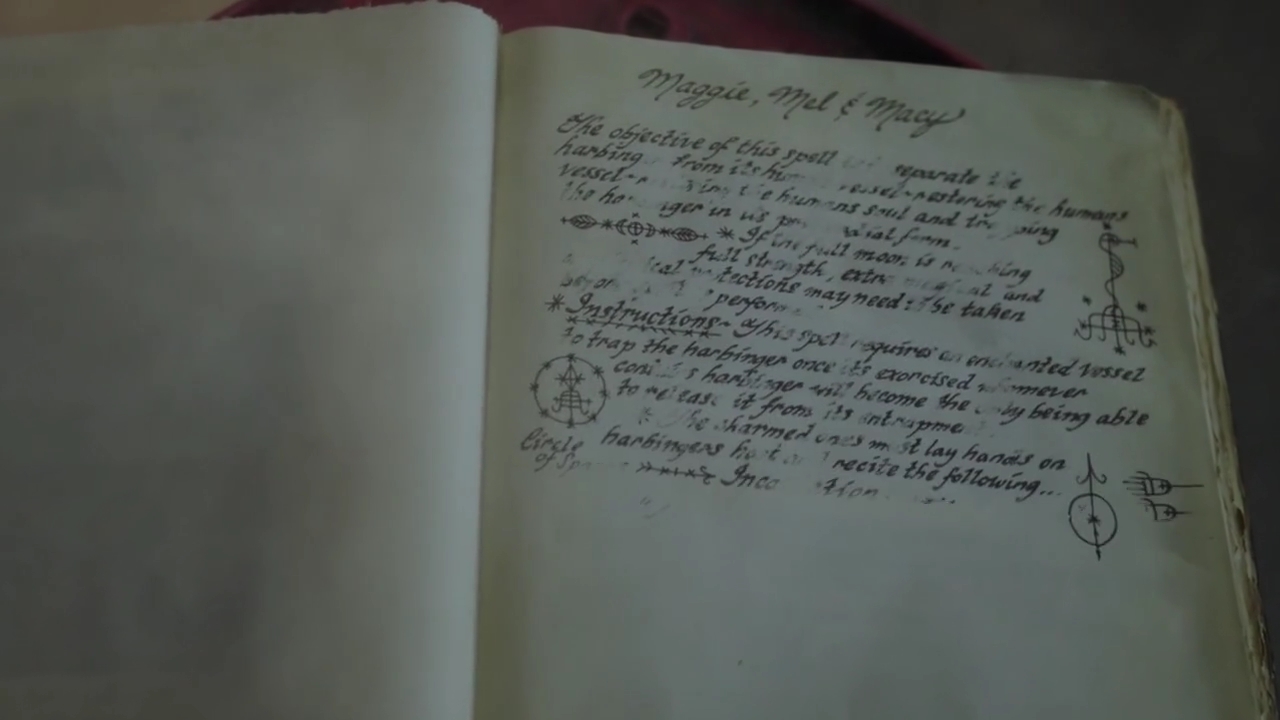 Maggie, Mel & Macy
The objective of this spell separate the
harbing from its hu vessel-restoring the humans
vessel- the humans soul and tr ping
the ha nger in its p dial form.
* If the full moon is re ching
full strength, extra magical and
ical tections may need to be taken
befor perform
* Instructions- This spell requires an enchanted vessel
to trap the harbinger once it's exorcised whomever
cont s harbinger will become the only being able
to release it from its entrapme
The charmed ones must lay hands on
Circle harbingers h recite the following...
of Sp Inca tion